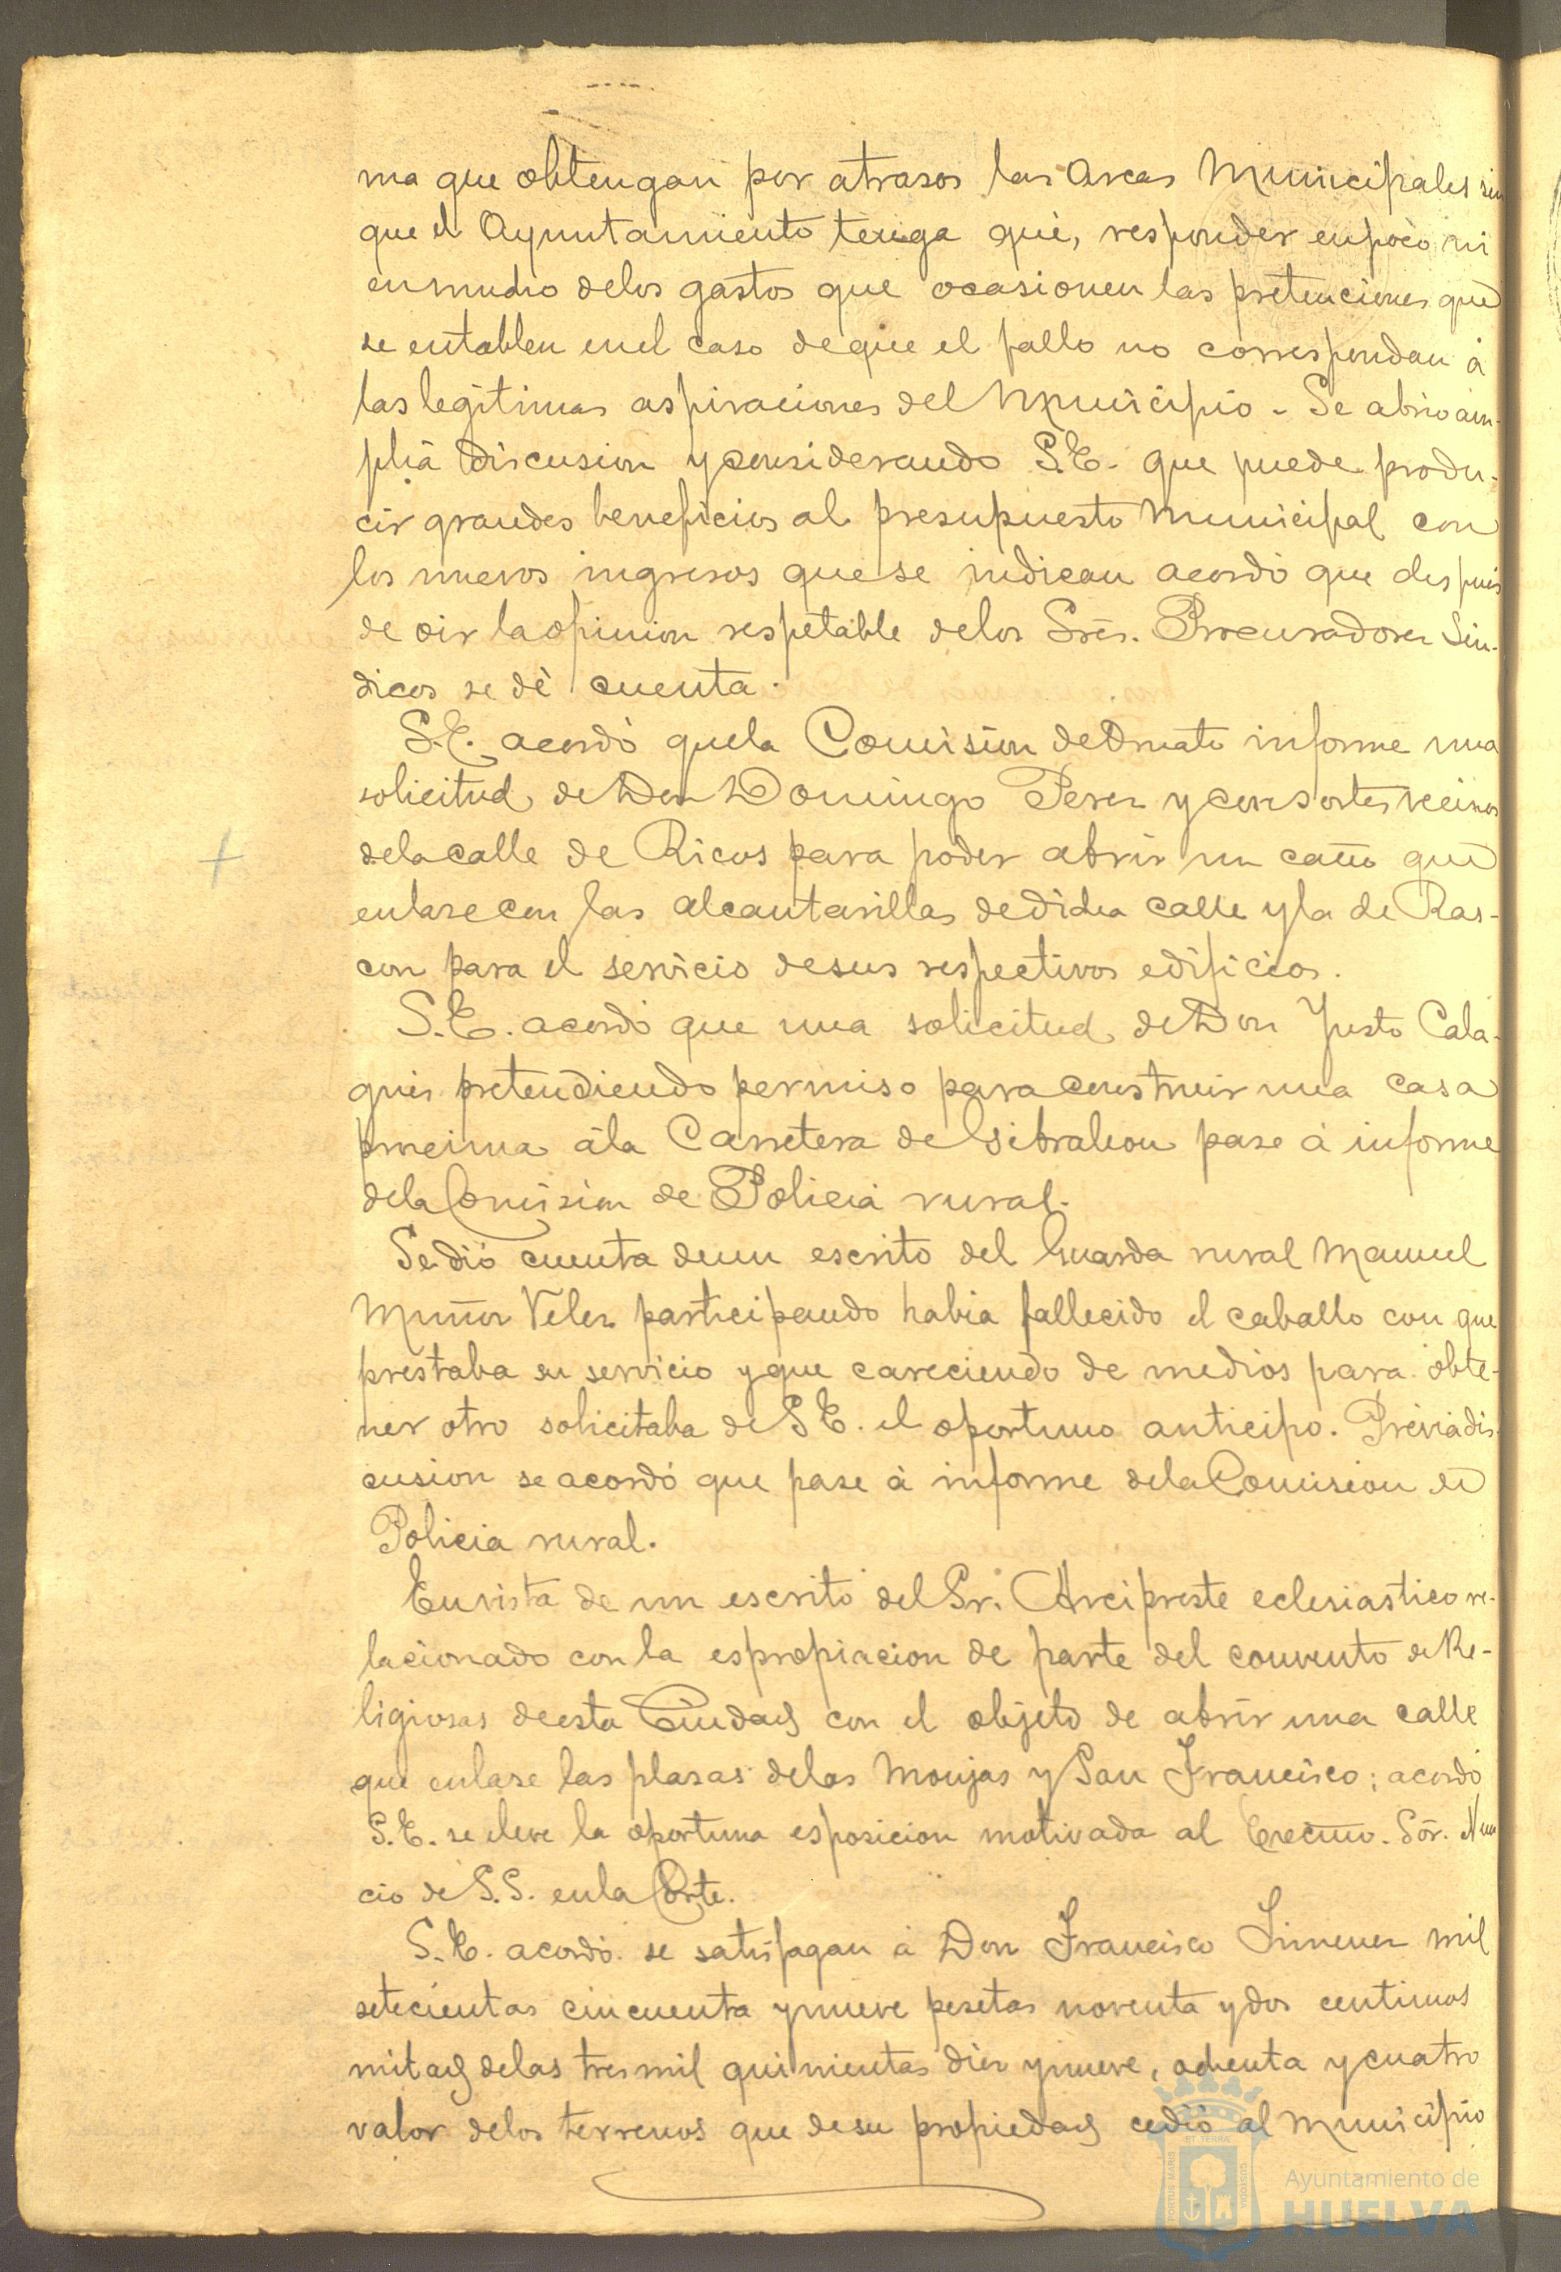 ma que obtengan por atrasos las Arcas Municipales sin
que el Ayuntamiento tenga que, responder en poco ni
en mucho de los gastos que ocasionen las pretenciones que
se entablen en el caso de que el fallo no correspondan á
las legitimas aspiraciones del Municipio - Se abrio am-
plia discusion y considerando S.E. que puede produ-
cir grandes beneficios al presupuesto Municipal con
los nuevos ingresos que se indican acordó que despues
de oir la opinion respetable de los Sres. Procuradores Sin-
dicos se dé cuenta.
S.E. acordó que la Comision de Ornato informe una
solicitud de Don Domingo Perez y consortes vecinos
de la calle de Ricos para poder abrir un caño que
enlase con las alcantarillas de dicha calle y la de Ras-
con para el servicio de sus respectivos edificios.
S.E. acordó que una solicitud de Don Justo Cala-
ques pretendiendo permiso para construir una casa
procima á la Carretera de Gibraleon pase á informe
de la Comision de Policia rural.
Se dió cuenta de un escrito del Guarda rural Manuel
Muñoz Velez participando habia fallecido el caballo con que
prestaba su servicio y que careciendo de medios para obte-
ner otro solicitaba de S.E. el oportuno anticipo. Previa dis-
cusion se acordó que pase á informe de la Comision de
Policia rural.
En vista de un escrito del Sr. Arcipreste eclesiastico re-
lacionado con la espropiacion de parte del convento de Re-
ligiosas de esta Ciudad con el objeto de abrir una calle
que enlase las plasas de las Monjas y San Francisco; acordó
S.E. se eleve la oportuna esposicion motivada al Excmo. Sor. Nun
cio de S.S. en la Corte.
S.E. acordó se satisfagan á Don Francisco Jimenez mil
setecientas cincuenta y nueve pesetas noventa y dos centimos
mitad de las tres mil quinientas diez y nueve, ochenta y cuatro
valor de los terrenos que de su propiedad cedió al Municipio
PORTUS MARIS ET TERRAE CUSTODIA
Ayuntamiento de
HUELVA